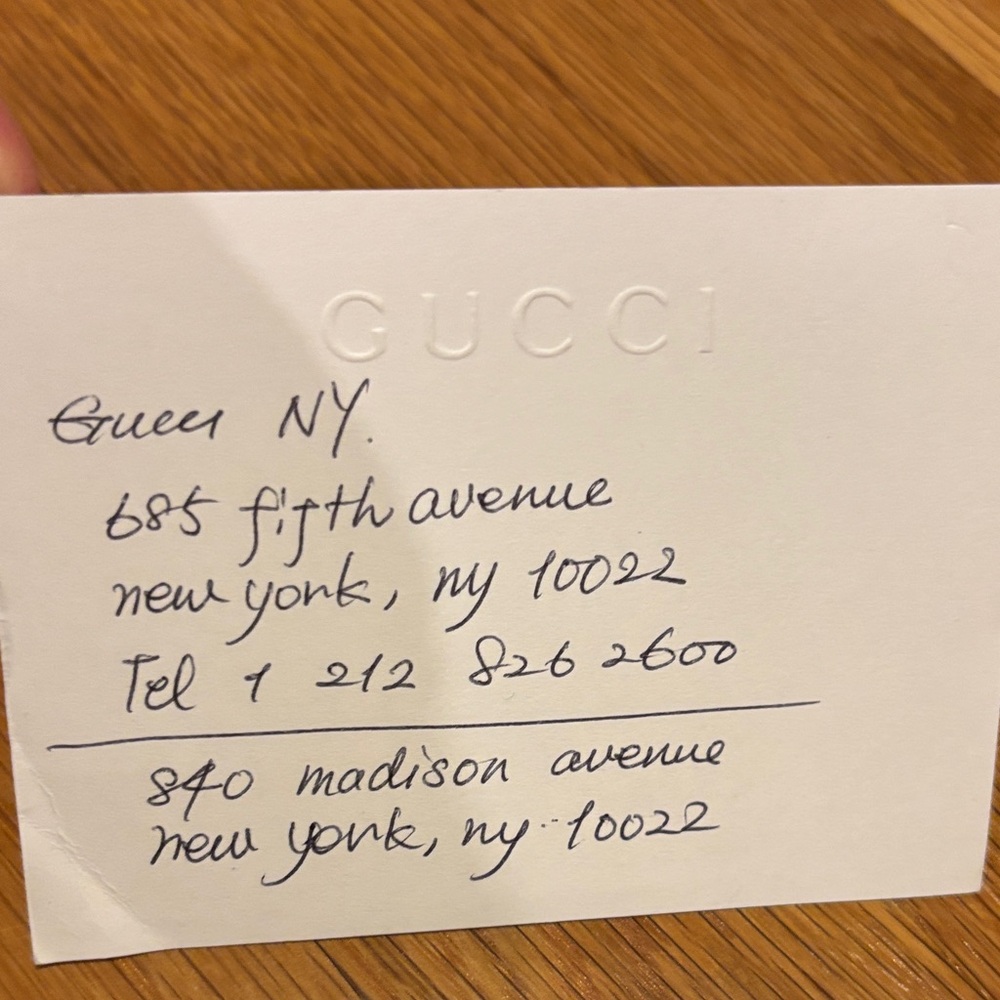 GUCCI
Gucci NY.
685 fifth avenue
new york, ny 10022
Tel + 212 826 2600
840 madison avenue
new york, ny 10022